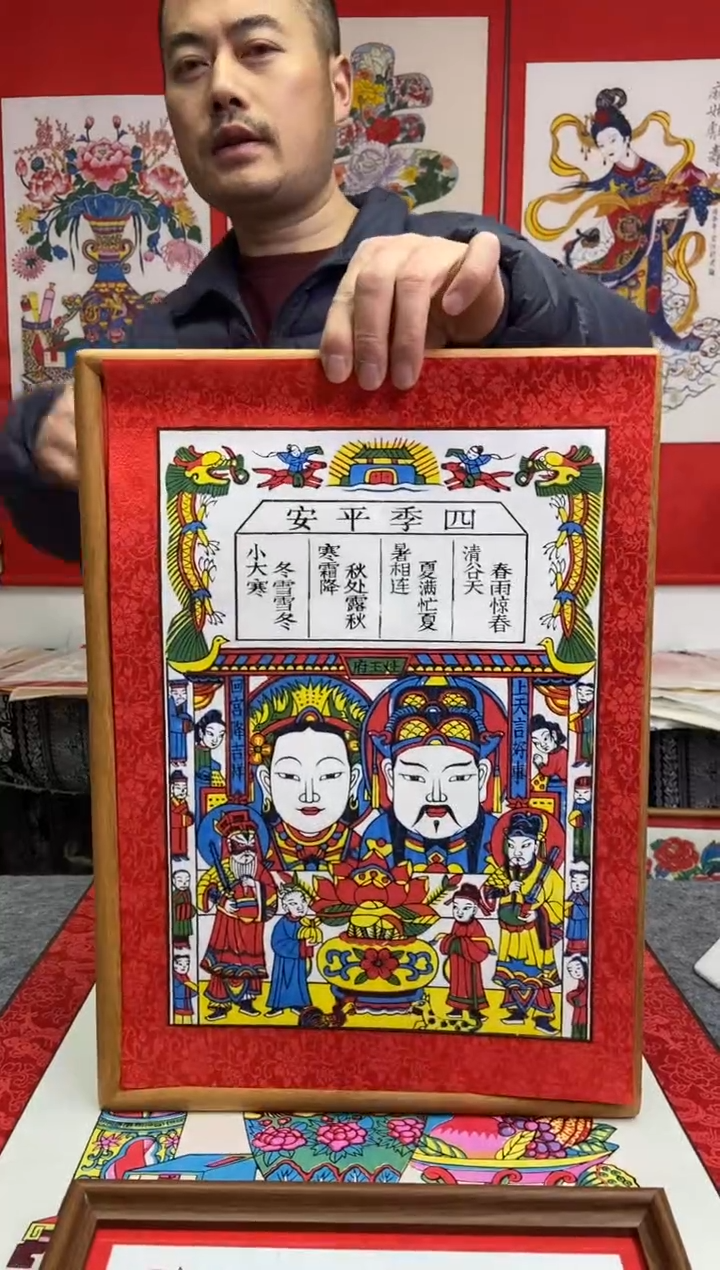 四季平安
春雨惊春
清谷天
夏满忙夏
暑相连
秋处露秋
寒霜降
冬雪雪冬
小大寒
灶王府
上天言好事
回宫降吉祥